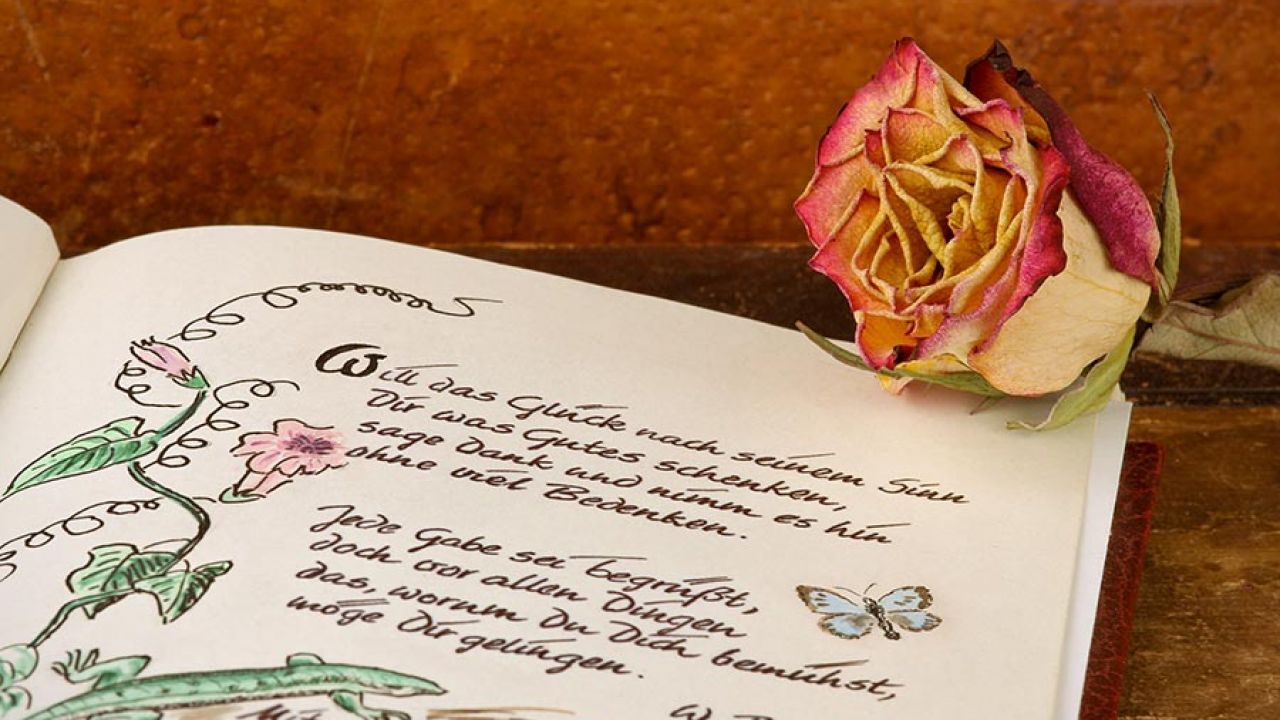 Will das Glück nach seinem Sinn
Dir was Gutes schenken,
sage Dank und nimm es hin
ohne viel Bedenken.
Jede Gabe sei begrüßt,
doch vor allen Dingen
das, worum Du Dich bemühst,
möge Dir gelingen.